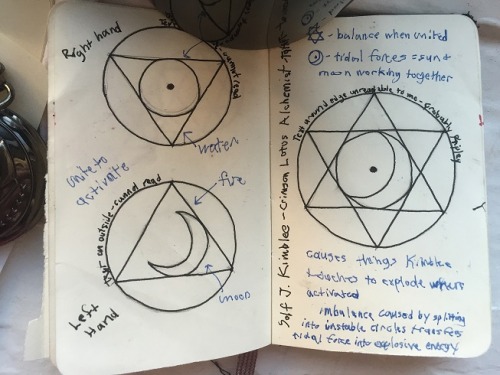 Right hand
Text
cannot read
water
unite to
activate
Text on outside - cannot read
fire
moon
Left
Hand
Solf J. Kimblee - Crimson Lotus Alchemist
- balance when united
- tidal forces = sun &
moon working together
Text around edge unreadable to me - probably
causes things Kimblee
touches to explode when
activated
imbalance caused by splitting
into unstable circles transfers
tidal force into explosive energy